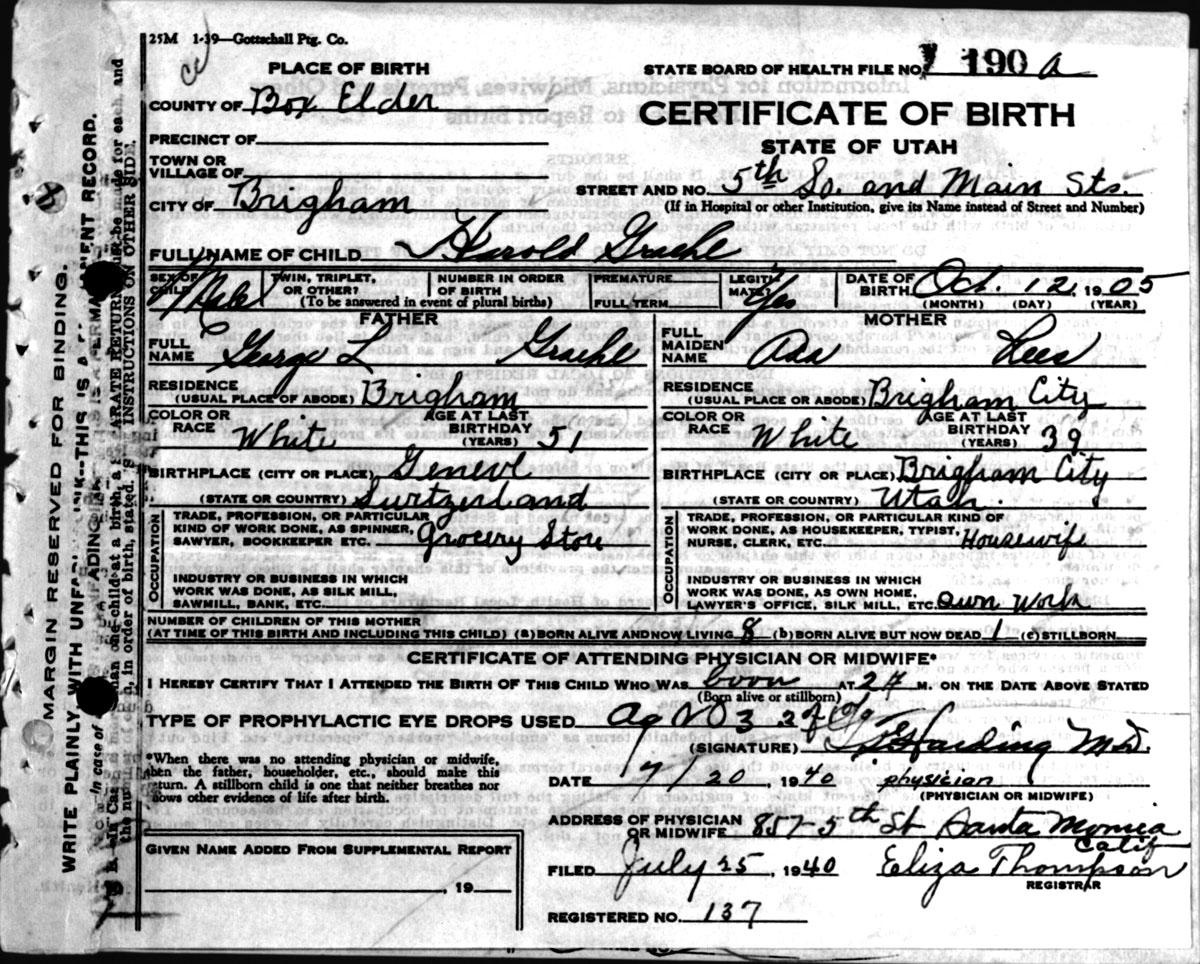 25M 1-39—Gottschall Ptg. Co.
PLACE OF BIRTH
STATE BOARD OF HEALTH FILE NO. 190 a
COUNTY OF Box Elder
CERTIFICATE OF BIRTH
STATE OF UTAH
PRECINCT OF
TOWN OR
VILLAGE OF
STREET AND NO. 5th So. and Main Sts.
(If in Hospital or other Institution, give its Name instead of Street and Number)
CITY OF Brigham
FULL NAME OF CHILD Harold Graehl
SEX OF CHILD Male
TWIN, TRIPLET, OR OTHER?
NUMBER IN ORDER OF BIRTH
(To be answered in event of plural births)
PREMATURE
FULL TERM
LEGITIMATE? Yes
DATE OF BIRTH Oct. 12, 1905
(MONTH) (DAY) (YEAR)
FATHER
FULL NAME George L Graehl
RESIDENCE (USUAL PLACE OF ABODE) Brigham
COLOR OR RACE White
AGE AT LAST BIRTHDAY (YEARS) 51
BIRTHPLACE (CITY OR PLACE) Genevl
(STATE OR COUNTRY) Switzerland
OCCUPATION
TRADE, PROFESSION, OR PARTICULAR
KIND OF WORK DONE, AS SPINNER,
SAWYER, BOOKKEEPER ETC. Grocery Store
INDUSTRY OR BUSINESS IN WHICH
WORK WAS DONE, AS SILK MILL,
SAWMILL, BANK, ETC.
MOTHER
FULL MAIDEN NAME Ada Lees
RESIDENCE (USUAL PLACE OR ABODE) Brigham City
COLOR OR RACE White
AGE AT LAST BIRTHDAY (YEARS) 39
BIRTHPLACE (CITY OR PLACE) Brigham City
(STATE OR COUNTRY) Utah.
OCCUPATION
TRADE, PROFESSION, OR PARTICULAR KIND OF
WORK DONE, AS HOUSEKEEPER, TYPIST,
NURSE, CLERK, ETC. Housewife
INDUSTRY OR BUSINESS IN WHICH
WORK WAS DONE, AS OWN HOME,
LAWYER'S OFFICE, SILK MILL, ETC. own work
NUMBER OF CHILDREN OF THIS MOTHER
(AT TIME OF THIS BIRTH AND INCLUDING THIS CHILD) (a) BORN ALIVE AND NOW LIVING 8 (b) BORN ALIVE BUT NOW DEAD 1 (c) STILLBORN
CERTIFICATE OF ATTENDING PHYSICIAN OR MIDWIFE*
I HEREBY CERTIFY THAT I ATTENDED THE BIRTH OF THIS CHILD WHO WAS born AT M. ON THE DATE ABOVE STATED
(Born alive or stillborn)
TYPE OF PROPHYLACTIC EYE DROPS USED Ag NO3
(SIGNATURE) Harding M.D.
*When there was no attending physician or midwife,
then the father, householder, etc., should make this
return. A stillborn child is one that neither breathes nor
shows other evidence of life after birth.
DATE 7/20, 1940 physician
(PHYSICIAN OR MIDWIFE)
ADDRESS OF PHYSICIAN OR MIDWIFE 857-5th St Santa Monica
Calif
GIVEN NAME ADDED FROM SUPPLEMENTAL REPORT
, 19
FILED July 25, 1940 Eliza Thompson
REGISTRAR
REGISTERED NO. 137
MARGIN RESERVED FOR BINDING.
WRITE PLAINLY WITH UNFADING INK—THIS IS A PERMANENT RECORD.